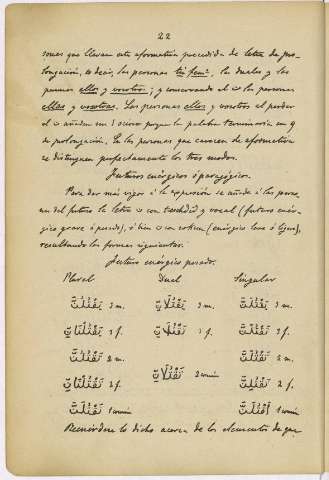 22
sonas que llevan esta aformativa precedida de letra de pro-
longación, es decir, las personas tú fem.ª, los duales y las
personas ellos y vosotros; y conservando el ن las personas
ellas y vosotras. Las personas ellos y vosotros al perder
el ن añaden un ا ocioso porque la palabra terminaría en و
de prolongación. En las personas que carecen de aformativa
se distinguen perfectamente los tres modos.
Futuro enérgico ó paragógico.
Para dar más vigor á la expresión se añade á las perso-
nas del futuro la letra ن con texdid y vocal (futuro enér-
gico grave ó pesado), ó bien ن con sokun (enérgico leve ó ligero),
resultando las formas siguientes.
Futuro enérgico pesado.
Plural Dual Singular
يَقْتُلُنَّ 3 m. يَقْتُلَانِّ 3 m. يَقْتُلَنَّ 3 m.
يَقْتُلْنَانِّ 3 f. تَقْتُلَانِّ 3 f. تَقْتُلَنَّ 3 f.
تَقْتُلُنَّ 2 m. تَقْتُلَنَّ 2 m.
تَقْتُلَانِّ 2 común
تَقْتُلْنَانِّ 2 f. تَقْتُلِنَّ 2 f.
نَقْتُلَنَّ 1 común أَقْتُلَنَّ 1 común
Recuérdese lo dicho acerca de los elementos de que